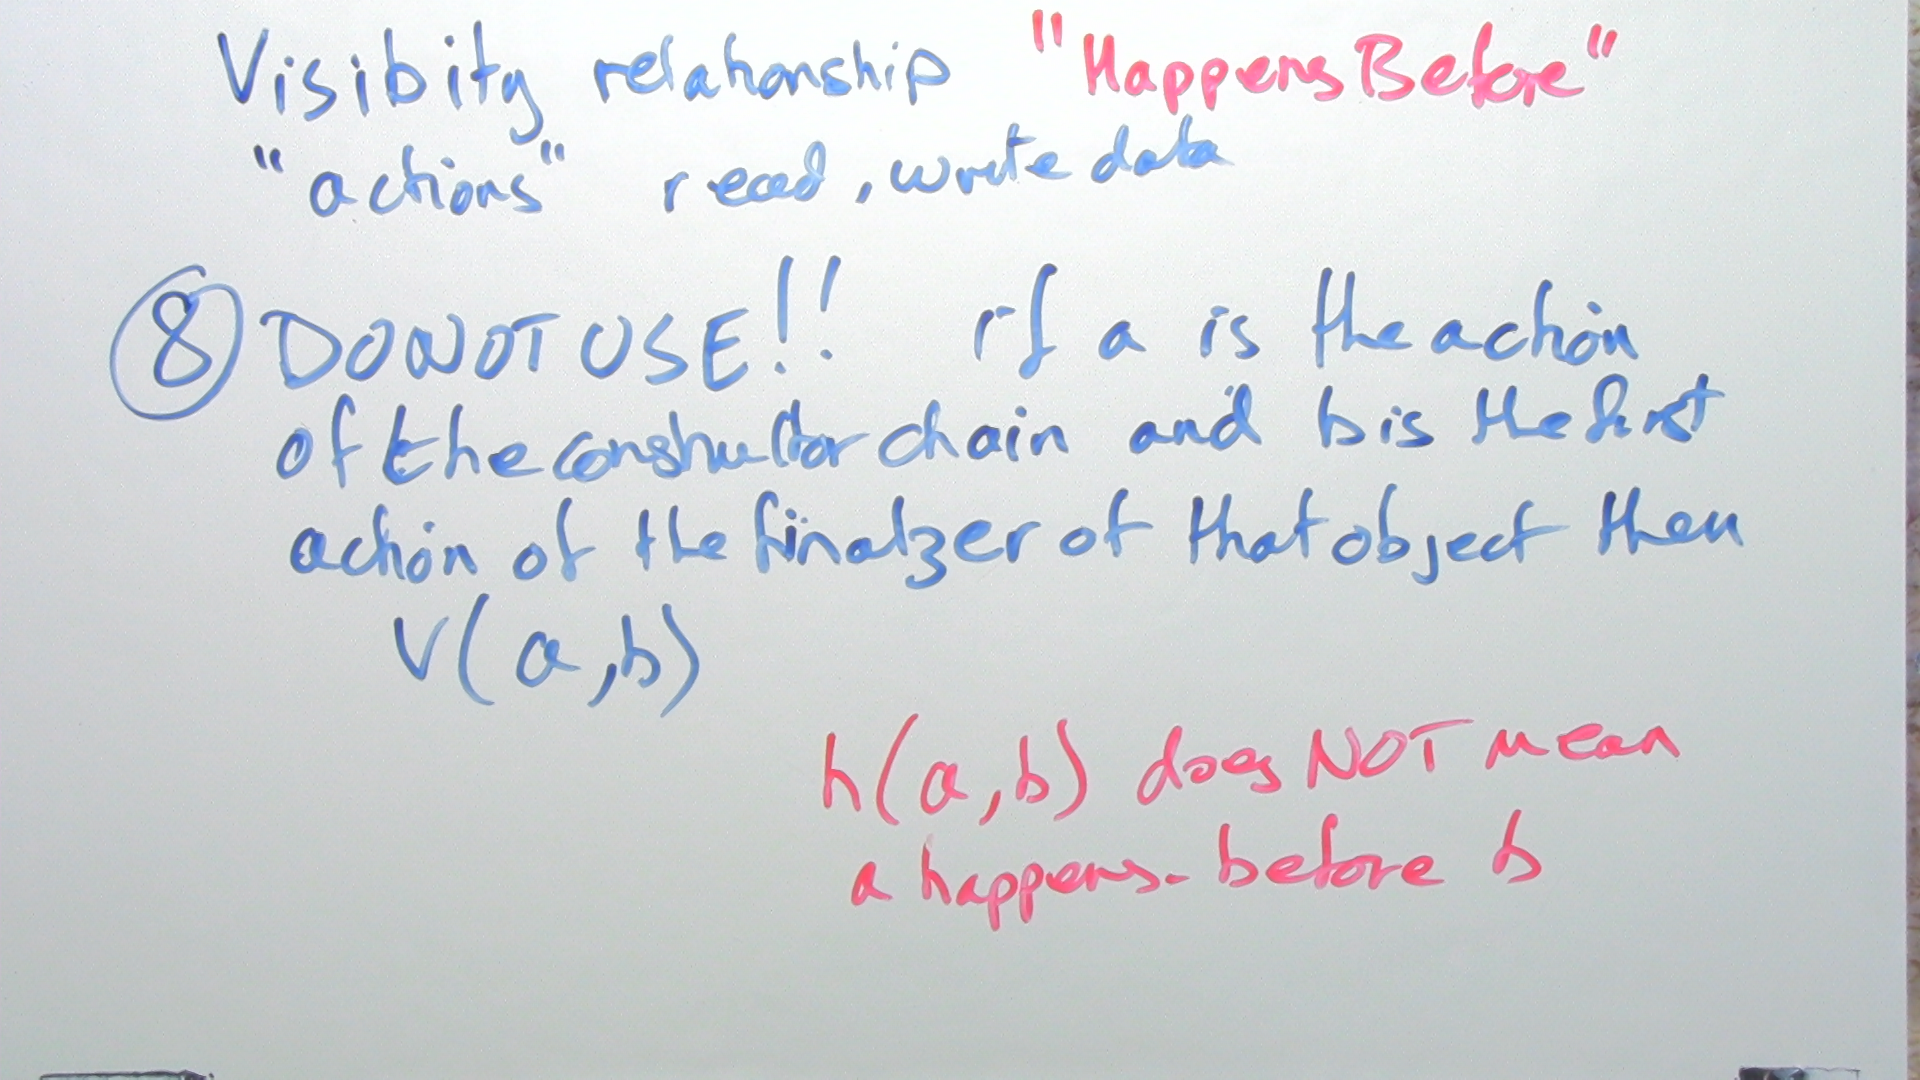 Visibity relationship "HappensBefore"
"actions" read, write data
8 DO NOT USE!! if a is the action
of the constructor chain and b is the first
action of the finalzer of that object then
V(a,b)
h(a,b) does NOT mean
a happens-before b